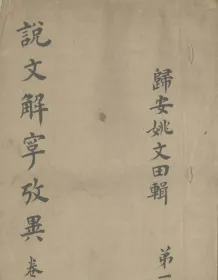 歸安姚文田輯 第
說文解字攷異 卷